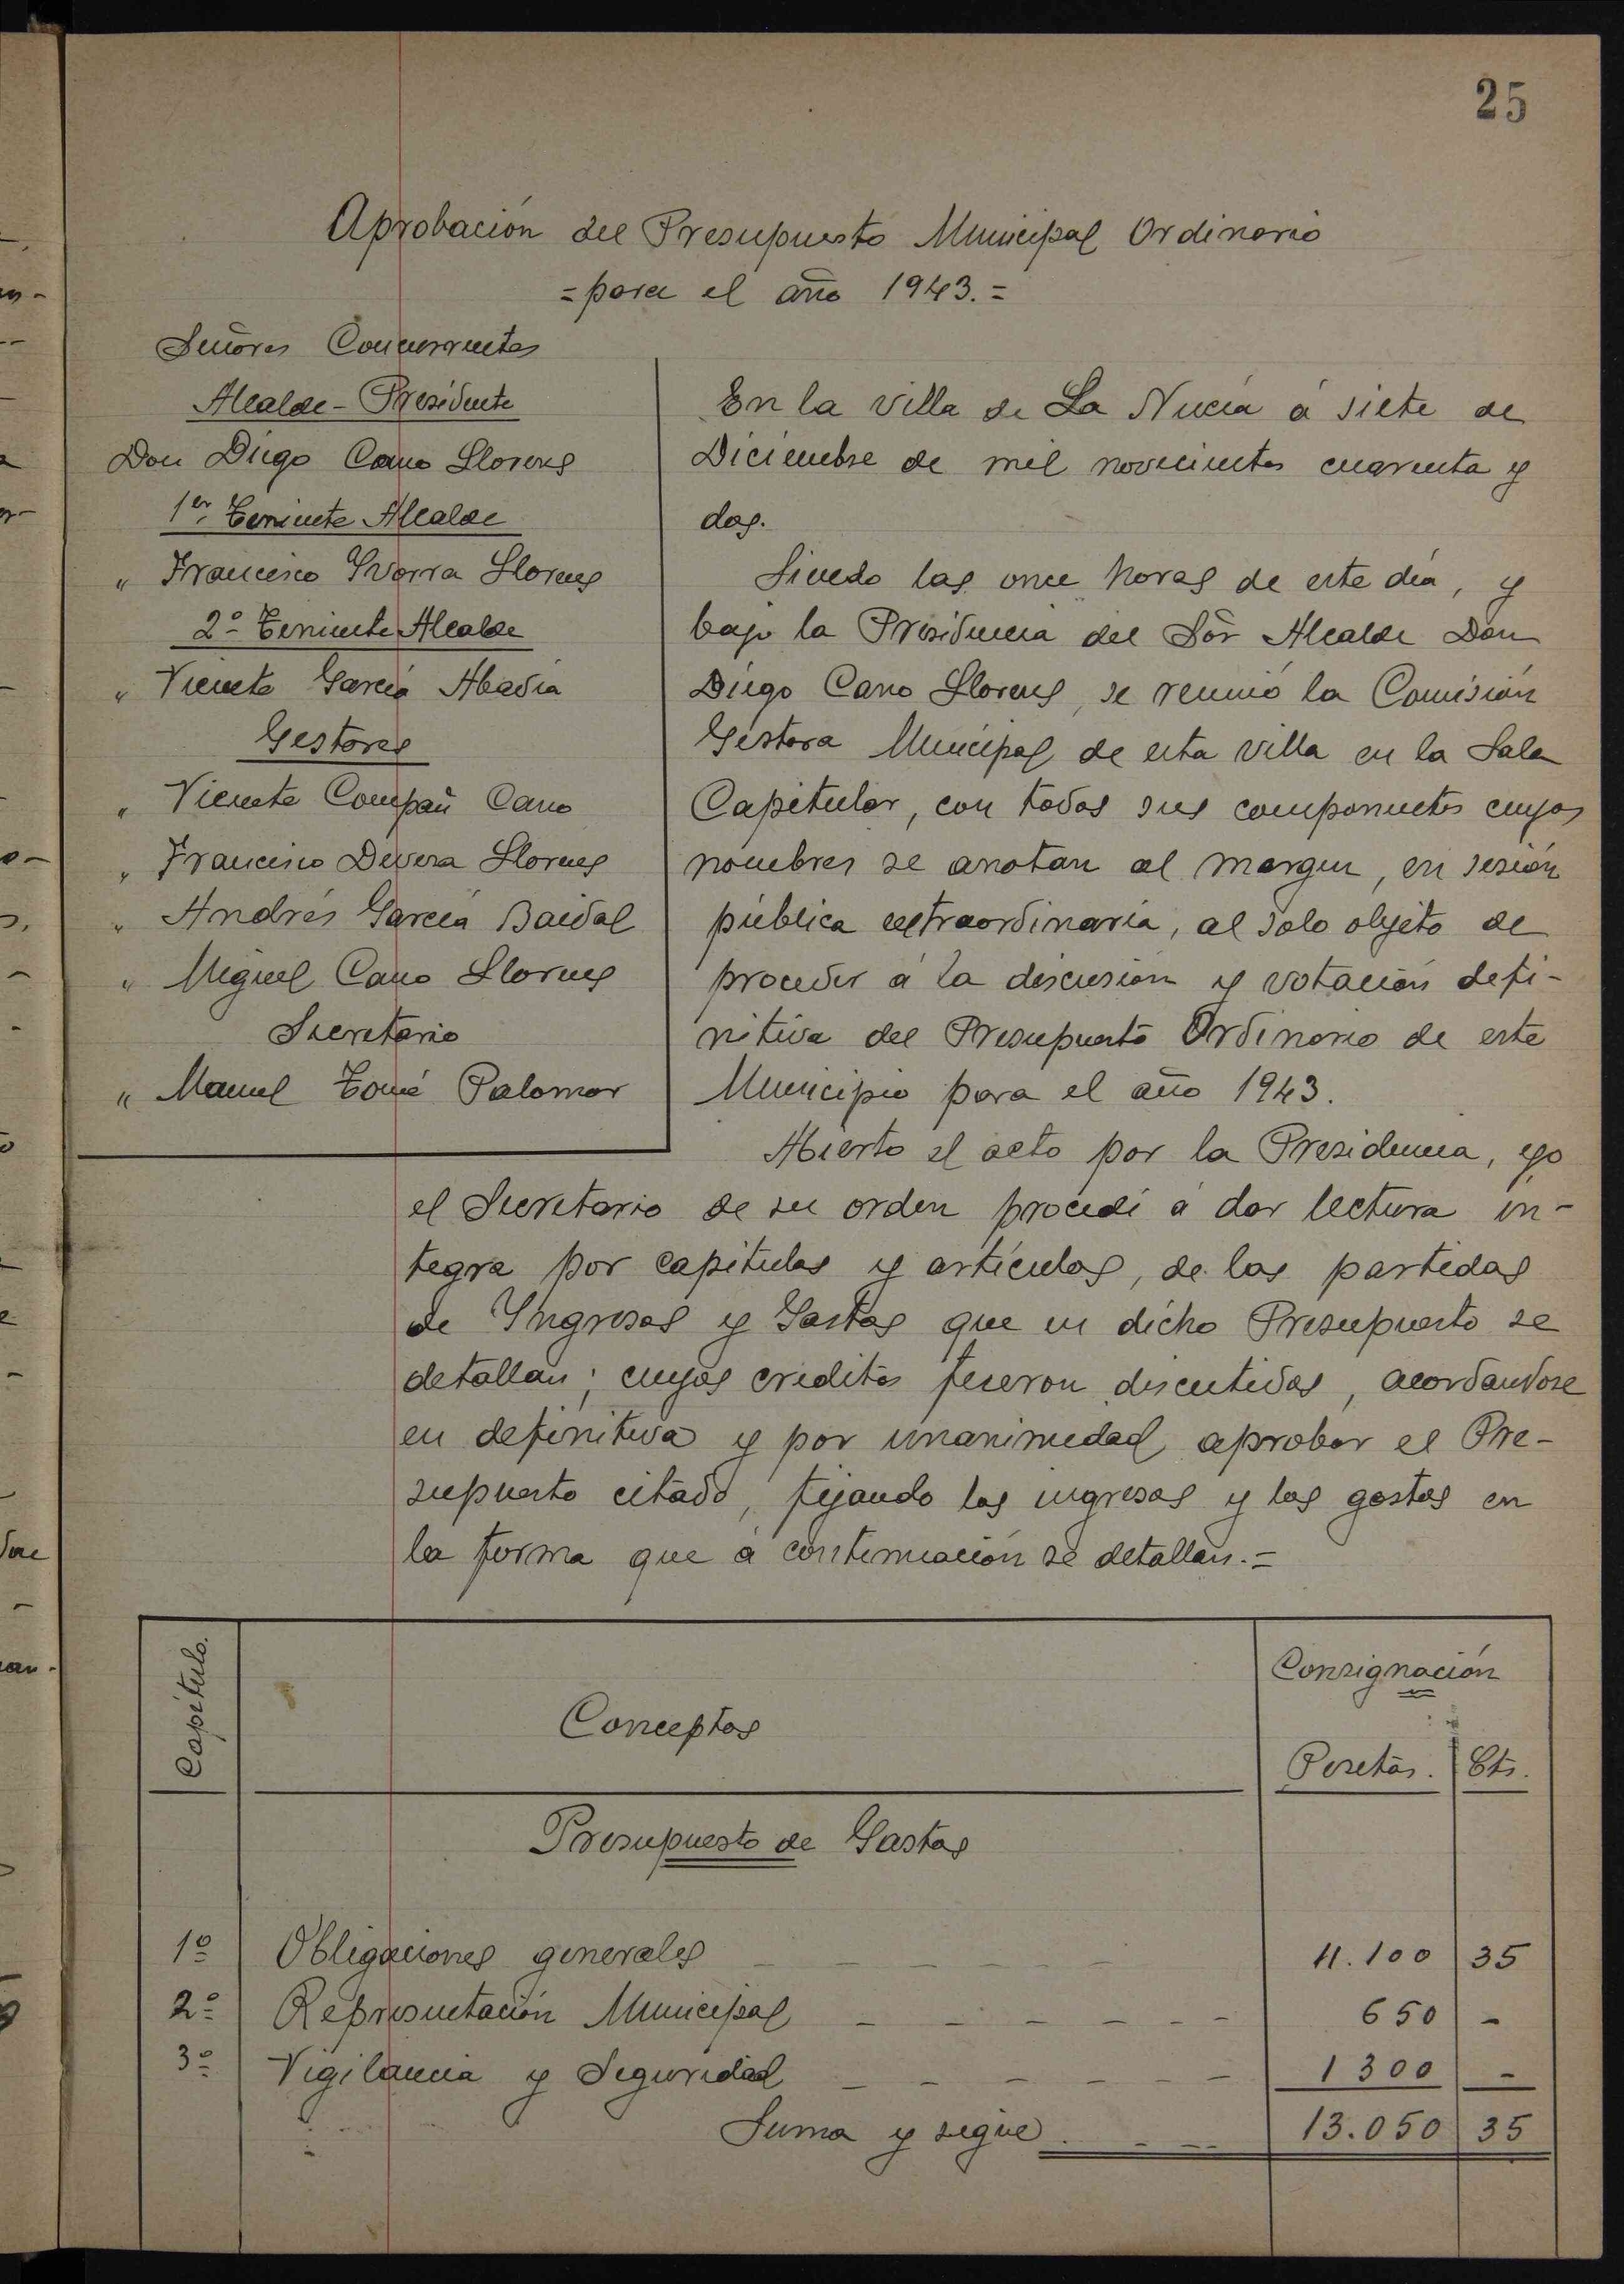 25
Aprobación del Presupuesto Municipal Ordinario
= para el año 1943. =
Señores Concurrentes
Alcalde - Presidente
Don Diego Cano Llorens
1er Teniente Alcalde
" Francisco Ivorra Llorens
2º Teniente Alcalde
" Vicente García Abadía
Gestores
" Vicente Compañ Cano
" Francisco Devesa Llorens
" Andrés García Baidal
" Miguel Cano Llorens
Secretario
" Manuel Tomé Palomar
En la villa de La Nucía á siete de
Diciembre de mil novecientos cuarenta y
dos.
Siendo las once horas de este día, y
bajo la Presidencia del Sór Alcalde Don
Diego Cano Llorens, se reunió la Comisión
Gestora Municipal de esta villa en la Sala
Capitular, con todos sus componentes cuyos
nombres se anotan al margen, en sesión
pública extraordinaria, al solo objeto de
proceder á la discusión y votación defi-
nitiva del Presupuesto Ordinario de este
Municipio para el año 1943.
Abierto el acto por la Presidencia, yo
el Secretario de su orden procedí á dar lectura ín-
tegra por capítulos y artículos, de las partidas
de Ingresos y Gastos que en dicho Presupuesto se
detallan; cuyos créditos fueron discutidos, acordandose
en definitiva y por unanimidad aprobar el Pre-
supuesto citado, fijando los ingresos y los gastos en
la forma que á continuación se detallan. =
Capítulo. Conceptos Consignación
Pesetas. Cts.
Presupuesto de Gastos
1º Obligaciones generales - - - - - - 11.100 35
2º Representación Municipal - - - - - - 650 -
3º Vigilancia y Seguridad - - - - - - 1300 -
Suma y sigue - - - 13.050 35